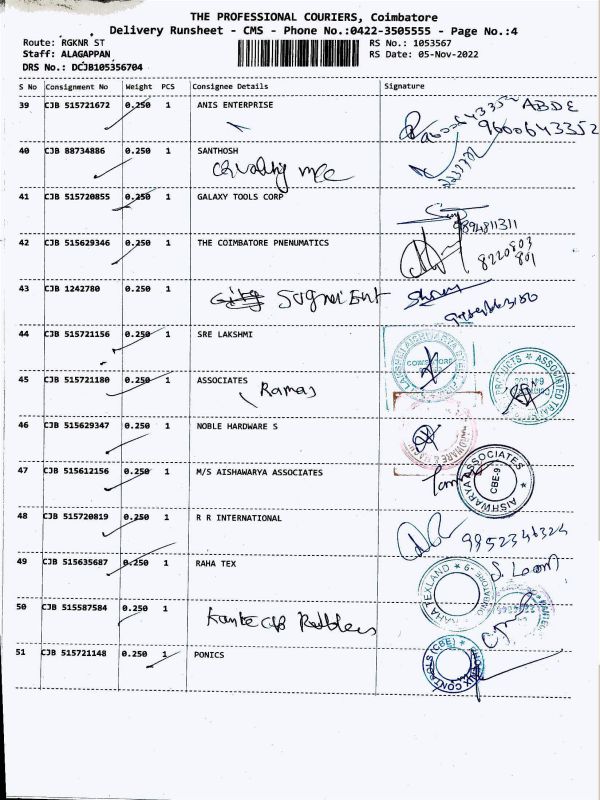 THE PROFESSIONAL COURIERS, Coimbatore
Delivery Runsheet - CMS - Phone No.:0422-3505555 - Page No.:4
Route: RGKNR ST
Staff: ALAGAPPAN
DRS No.: DCJB105356704
RS No.: 1053567
RS Date: 05-Nov-2022
S No Consignment No Weight PCS Consignee Details Signature
39 CJB 515721672 0.250 1 ANIS ENTERPRISE
ABDE
9600643352
40 CJB 88734886 0.250 1 SANTHOSH
41 CJB 515720855 0.250 1 GALAXY TOOLS CORP
9894811311
42 CJB 515629346 0.250 1 THE COIMBATORE PNENUMATICS
8220803
801
43 CJB 1242780 0.250 1
44 CJB 515721156 0.250 1 SRE LAKSHMI
45 CJB 515721180 0.250 1 ASSOCIATES
Ramas
PRODUCTS ★ ASSOCIATED
46 CJB 515629347 0.250 1 NOBLE HARDWARE S
47 CJB 515612156 0.250 1 M/S AISHAWARYA ASSOCIATES
AISHWARYA ASSOCIATES
CBE-9
48 CJB 515720819 0.250 1 R R INTERNATIONAL
9952346324
49 CJB 515635687 0.250 1 RAHA TEX
RAHA TEXLAND
50 CJB 515587584 0.250 1
51 CJB 515721148 0.250 1 PONICS
PHOENIX CONTROLS (CBE)